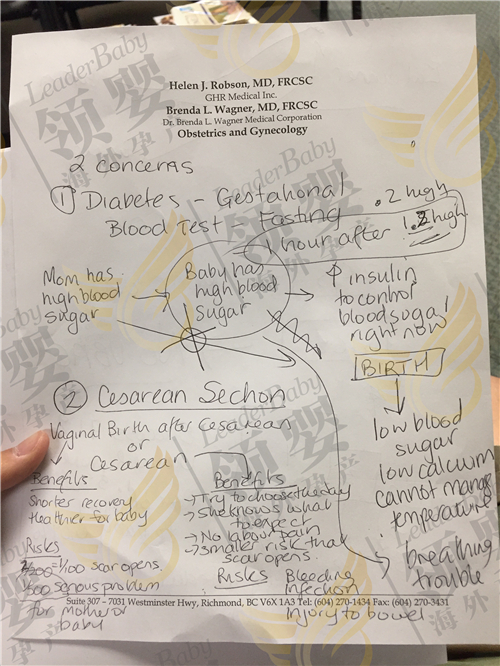 Helen J. Robson, MD, FRCSC
GHR Medical Inc.
Brenda L. Wagner, MD, FRCSC
Dr. Brenda L. Wagner Medical Corporation
Obstetrics and Gynecology
2 concerns
① Diabetes - Gestational
Blood Test - Fasting .2 high
1 hour after 1.2 high
Mom has
high blood
sugar
Baby has
high blood
sugar
↑ insulin
to control
blood sugar
right now
BIRTH
low blood
sugar
low calcium
cannot manage
temperature
breathing
trouble
② Cesarean Section
Vaginal Birth after Cesarean
or
Cesarean
Benefits
Shorter recovery
Healthier for baby
Risks
1/100 scar opens
1/500 serious problem
for mother or
baby
Benefits
→ Try to choose the day
→ She knows what
to expect
→ No labour pain
→ smaller risk that
scar opens
Risks Bleeding
Infection
Injury to bowel
Suite 307 – 7031 Westminster Hwy, Richmond, BC V6X 1A3 Tel: (604) 270-1434 Fax: (604) 270-3431
LeaderBaby
领婴
海外孕产